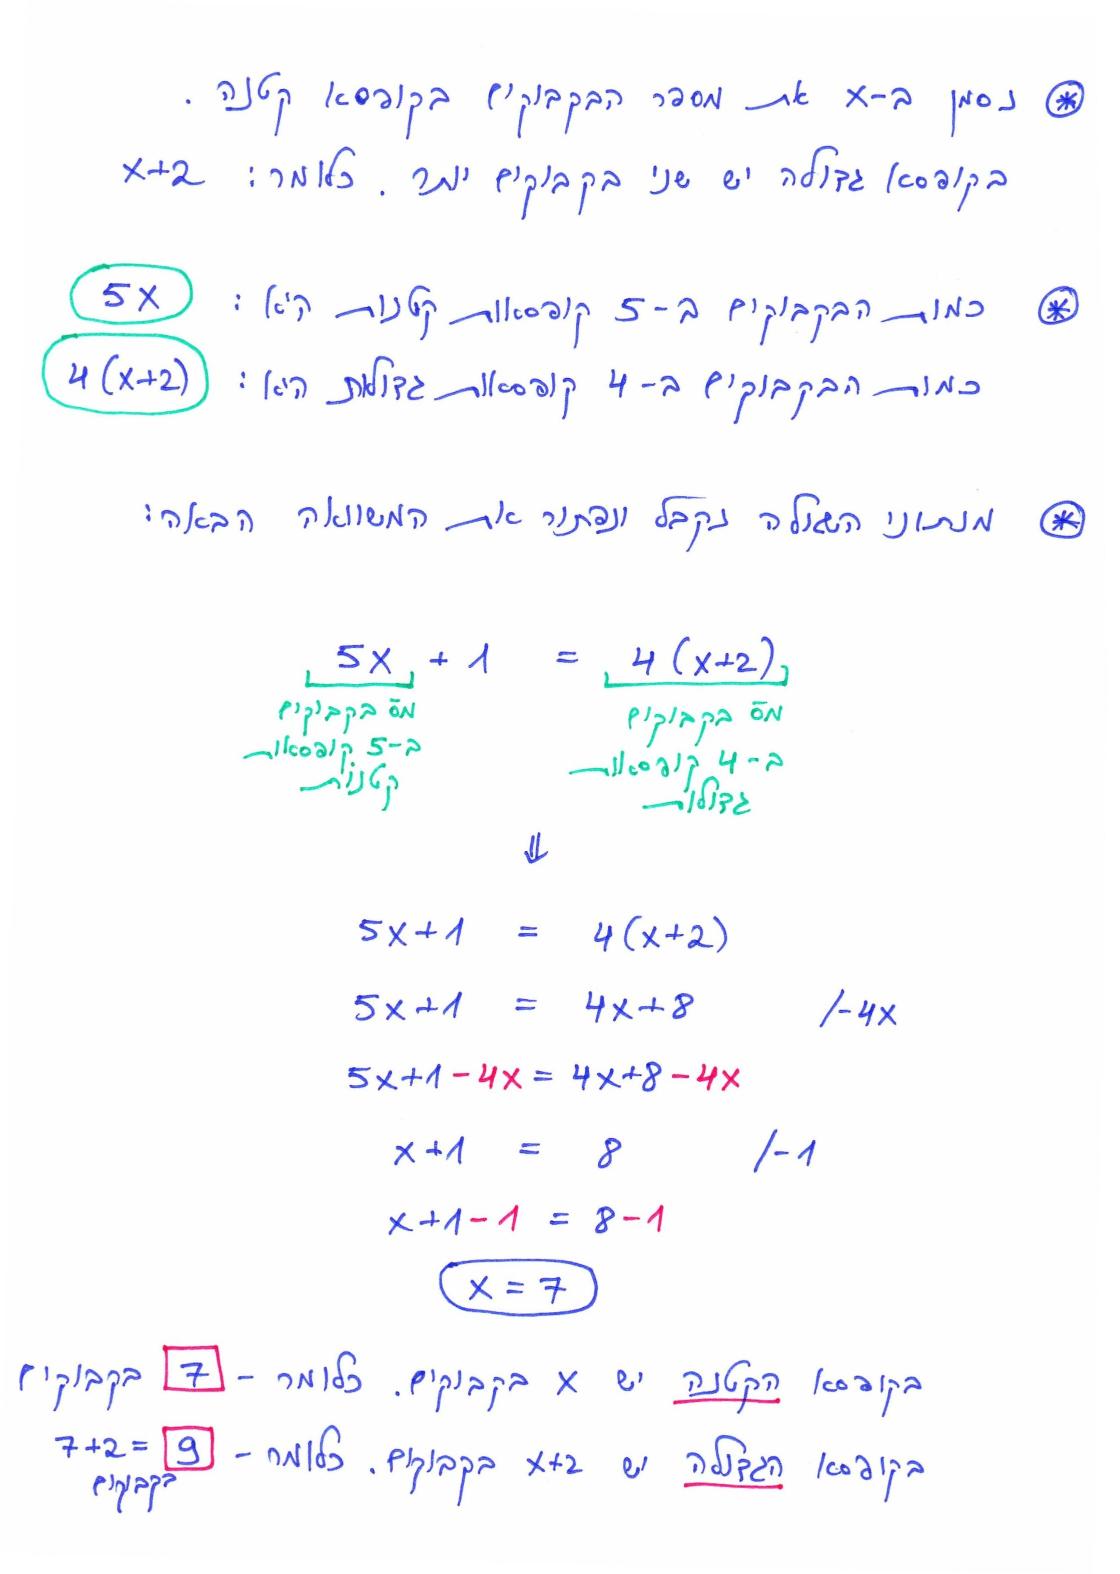 ⊛ נסמן ב-x את מספר הבקבוקים בקופסא קטנה.
בקופסא גדולה יש שני בקבוקים יותר. כלומר: x+2
⊛ כמות הבקבוקים ב-5 קופסאות קטנות היא: 5x
כמות הבקבוקים ב-4 קופסאות גדולות היא: 4(x+2)
⊛ מנתוני השאלה נקבל ונפתור את המשוואה הבאה:
5x + 1 = 4(x+2)
מס בקבוקים
ב-5 קופסאות
קטנות
מס בקבוקים
ב-4 קופסאות
גדולות
⇓
5x+1 = 4(x+2)
5x+1 = 4x+8 /-4x
5x+1-4x = 4x+8-4x
x+1 = 8 /-1
x+1-1 = 8-1
x = 7
בקופסא הקטנה יש x בקבוקים. כלומר - 7 בקבוקים
בקופסא הגדולה יש x+2 בקבוקים. כלומר - 7+2=9
בקבוקים